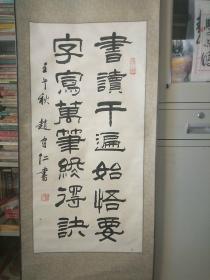 書讀千遍始悟要
字寫萬筆終得訣
壬午秋 趙守仁書